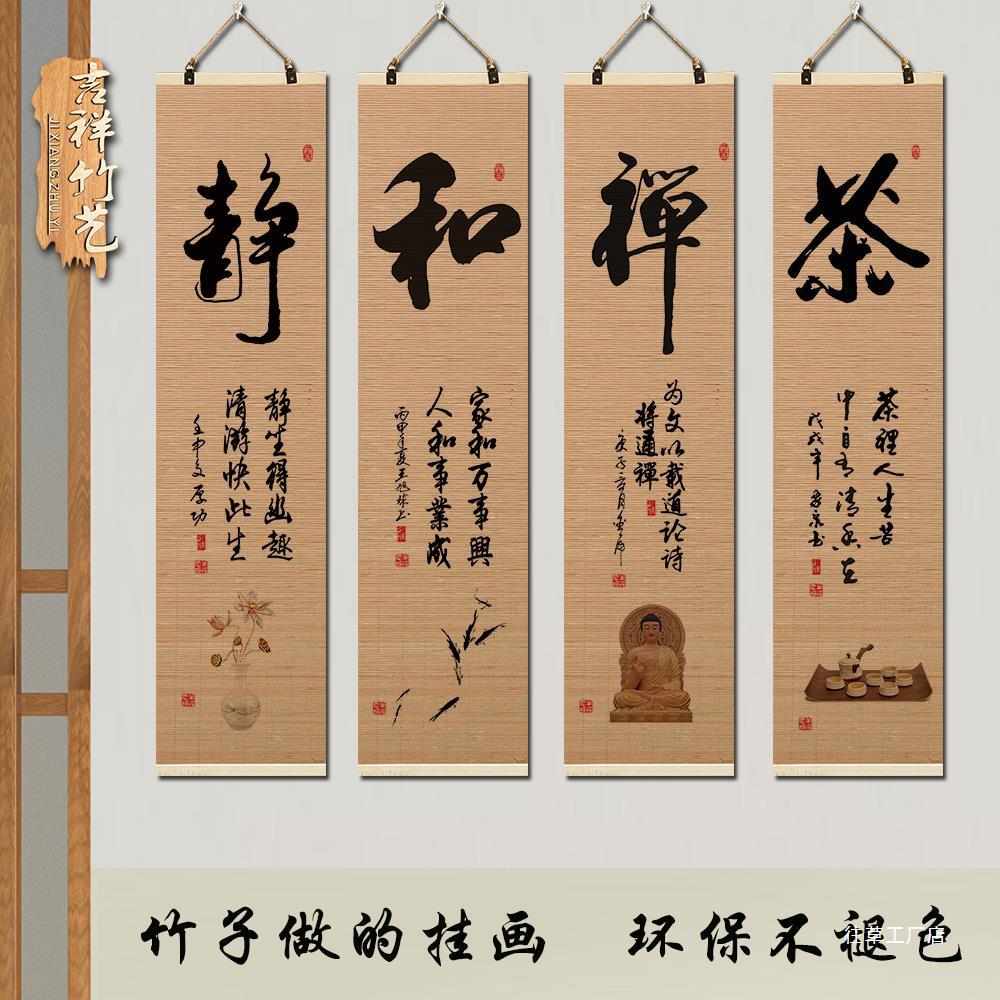 吉祥竹艺
JI XIANG ZHU YI
静
静坐得幽趣
清游快此生
和
家和万事興
人和事業成
丙申年夏
禪
为文以载道论诗
將通禪
茶
茶裡人生苦
中自有清香在
戊戌年
竹子做的挂画 环保不褪色
往草工厂店